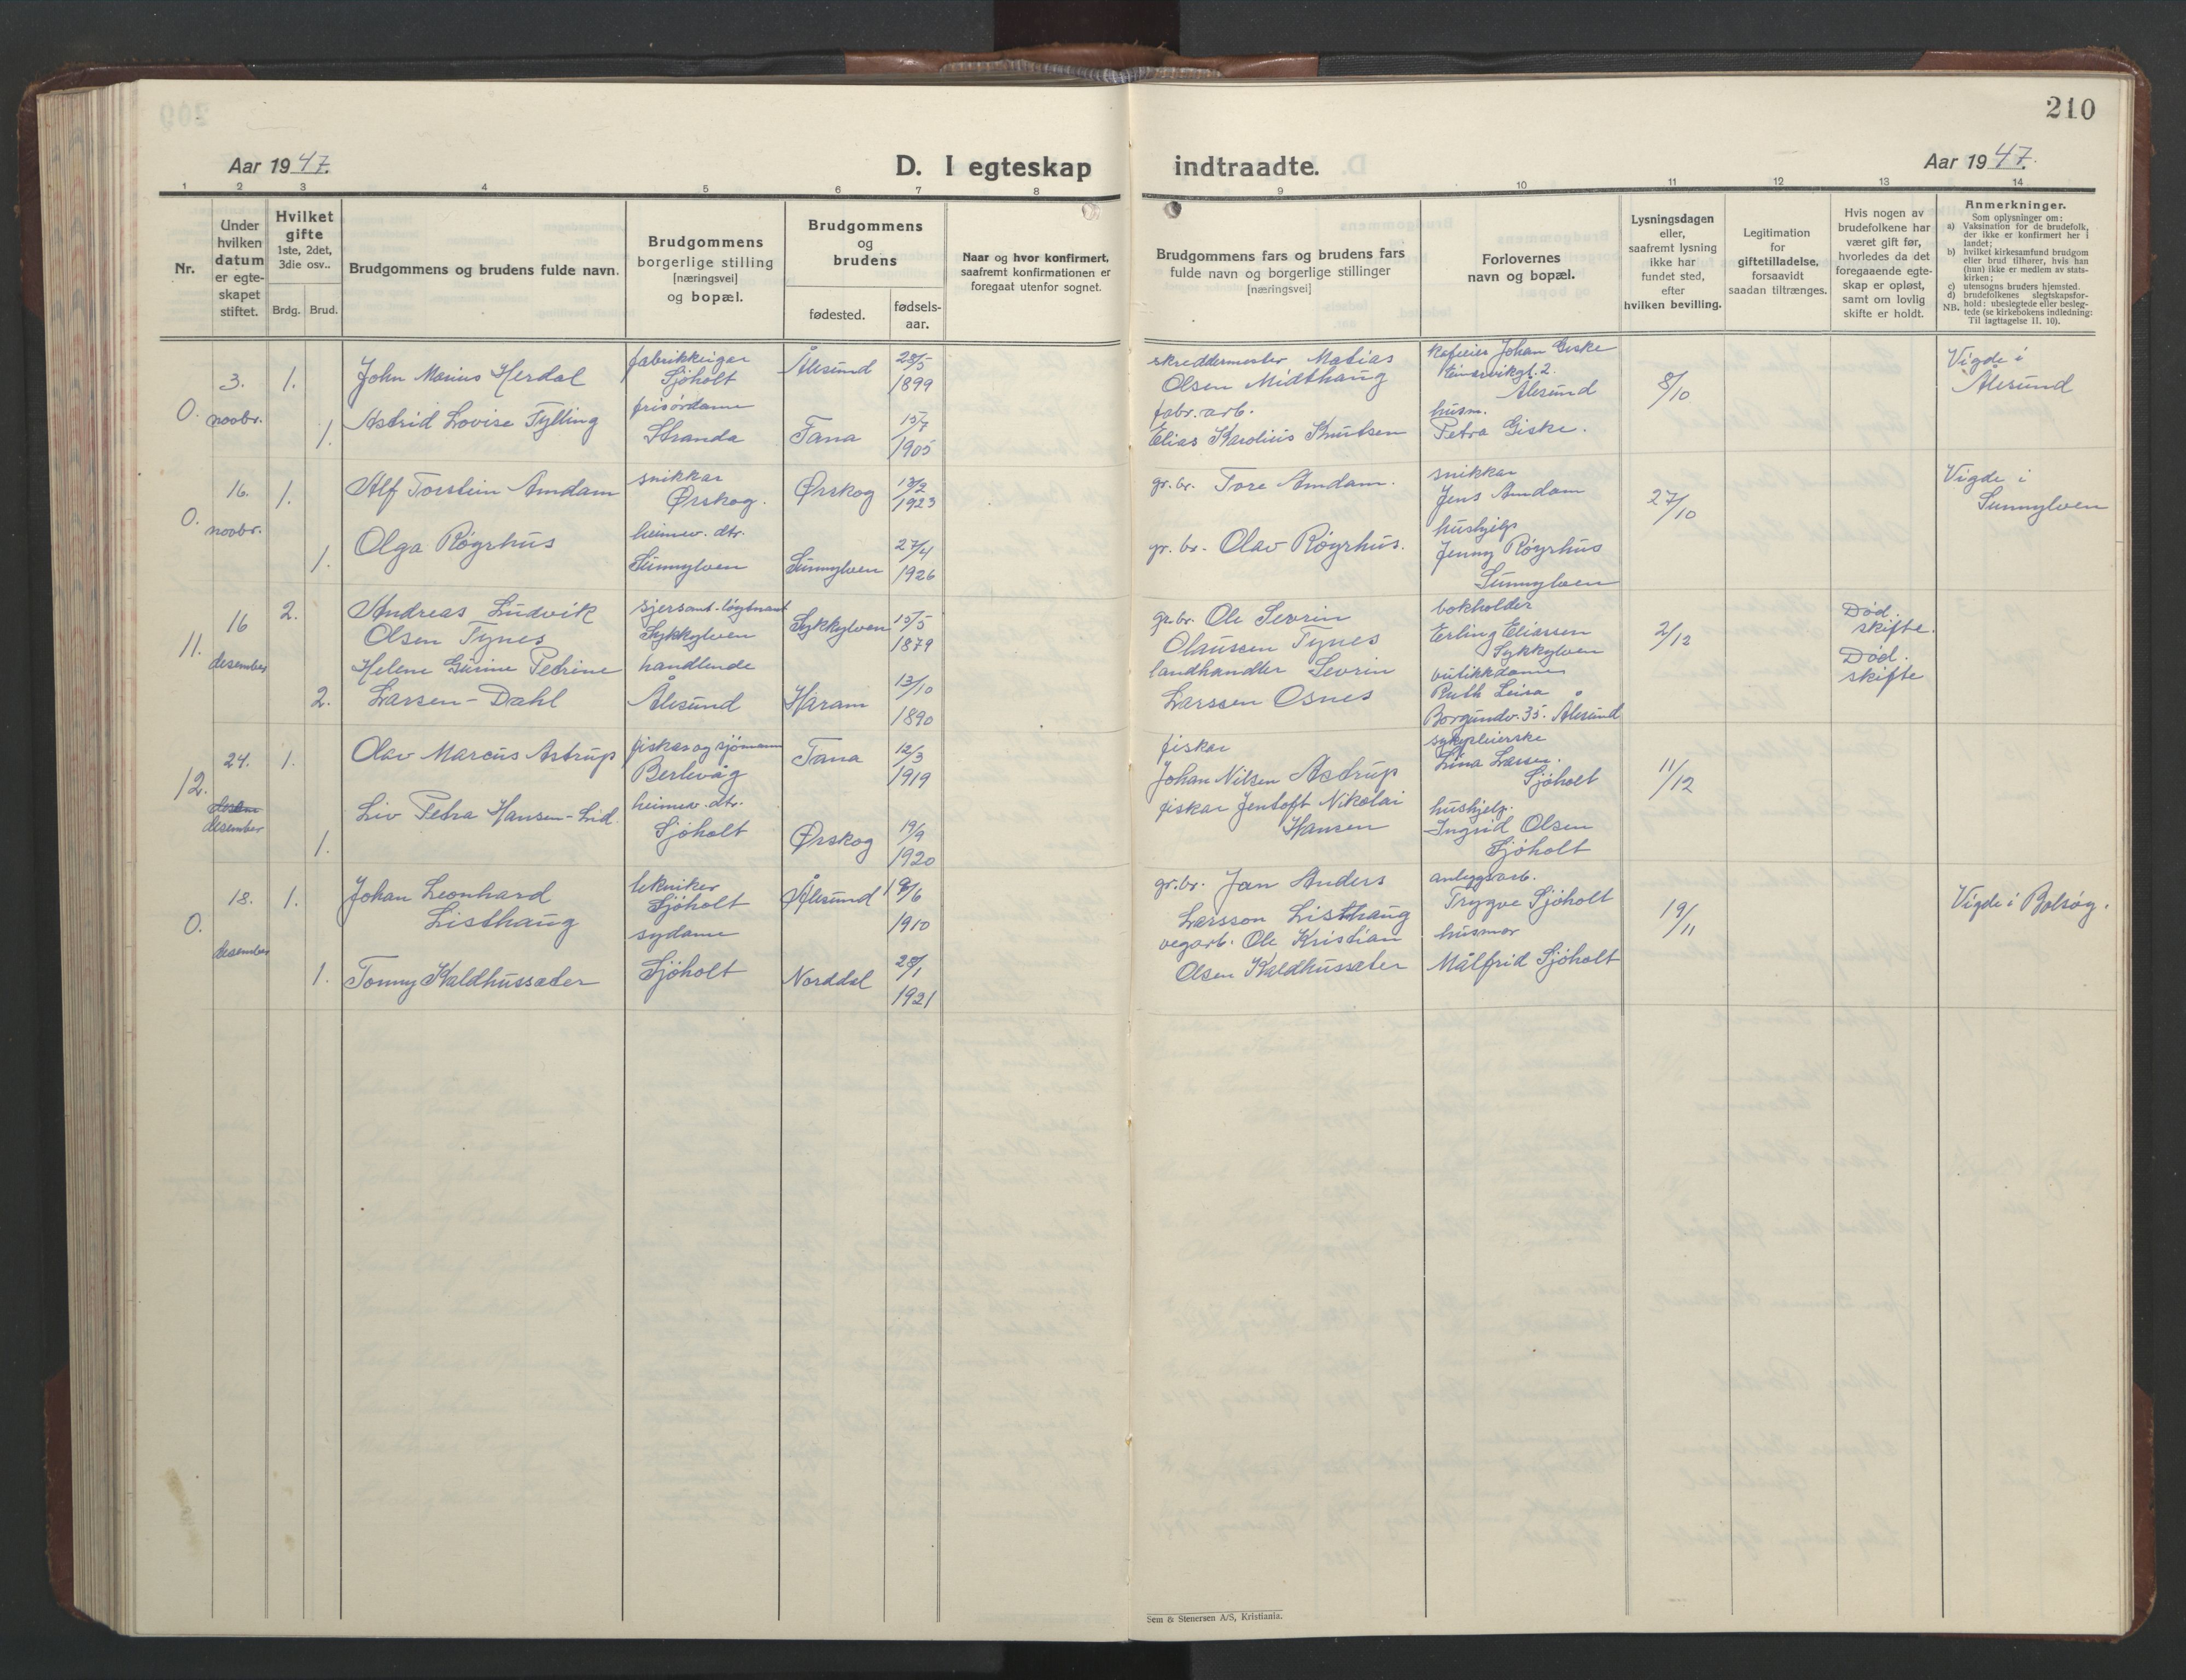 210
Aar 1947.
D. I egteskap
indtraadte.
Aar 1947.
1 2 3 4 5 6 7 8 9 10 11 12 13 14
Nr.
Under
hvilken
datum
er egte-
skapet
stiftet.
Hvilket
gifte
1ste, 2det,
3die osv..
Brdg. Brud.
Brudgommens og brudens fulde navn.
Brudgommens
borgerlige stilling
[næringsvei]
og bopæl.
Brudgommens
og
brudens
fødested.
fødsels-
aar.
Naar og hvor konfirmert,
saafremt konfirmationen er
foregaat utenfor sognet.
Brudgommens fars og brudens fars
fulde navn og borgerlige stillinger
[næringsvei]
Forlovernes
navn og bopæl.
Lysningsdagen
eller,
saafremt lysning
ikke har
fundet sted,
efter
hvilken bevilling.
Legitimation
for
giftetilladelse,
forsaavidt
saadan tiltrænges.
Hvis nogen av
brudefolkene har
været gift før,
hvorledes da det
foregaaende egte-
skap er opløst,
samt om lovlig
skifte er holdt.
Anmerkninger.
Som oplysninger om:
a) Vaksination for de brudefolk,
der ikke er konfirmert her i
landet;
b) hvilket kirkesamfund brudgom
eller brud tilhører, hvis han
(hun) ikke er medlem av stats-
kirken;
c) utensogns bruders hjemsted.
d) brudefolkenes slegtskapsfor-
NB. hold: ubeslegtede eller besleg-
tede (se kirkebokens indledning:
Til iagttagelse II. 10).
0.
3.
novbr.
1.
John Marius Herdal
fabrikkeigar
Sjøholt
Ålesund
28/5
1899
skreddermester Matias
Olsen Midthaug
Kafeeier Johan Giske
2.
Ålesund
8/10
Vigde i
Ålesund
1.
Astrid Lovise Tylling
frisørdame
Stranda
Tana
15/7
1905
fabr. arb.
Elias Karolius Knutsen
husm.
Petra Giske.
0.
16.
novbr.
1.
Alf Torstein Amdam
snikkar
Ørskog.
Ørskog
13/2
1923
gr. br. Tore Amdam.
snikkar
Jens Amdam
27/10
Vigde i
Sunnylven
1.
Olga Røyrhus
heimev. dtr.
Sunnylven
Sunnylven
27/4
1926
gr. br. Olav Røyrhus.
hushjelp
Jenny Røyrhus
Sunnylven
11.
16
desember
2.
Andreas Ludvik
Olsen Tynes
sjersant-løytnant
Sykkylven
Sykkylven
15/5
1879
gr. br. Ole Sevrin
Olaussen Tynes
bokholder
Erling Eliassen
Sykkylven
2/12
Død.
skifte.
2.
Helene Gurine Petrine
Larsen-Dahl
handlende
Ålesund
Haram
13/10
1890
landhandler Sevrin
Larssen Osnes
butikkdame
Ruth
Borgundv. 35. Ålesund
Død.
skifte
12.
24.
desember
1.
Olav Marcus Astrup
fiskar og sjømann
Berlevåg
Tana
12/3
1919
fiskar
Johan Nilsen Astrup
sykepleierske
Lina Larsen.
Sjøholt
11/12
1.
Liv Petra Hansen-Lid.
heimev. dtr.
Sjøholt
Ørskog
19/9
1920
fiskar Jentoft Nikolai
Hansen
hushjelp.
Ingrid Olsen
Sjøholt
0.
18.
desember
1.
Johan Leonhard
Listhaug
tekniker
Sjøholt
Ålesund
1910
gr. br. Jan Anders
Larsson Listhaug
anleggsarb.
Trygve Sjøholt
19/11
Vigde i Bolsøy.
1.
Tonny Kaldhussæter
sydame
Sjøholt
Norddal
28/1
1921
vegarb. Ole Kristian
Olsen Kaldhussæter
husmor
Målfrid Sjøholt
Sem & Stenersen A/S, Kristiania.